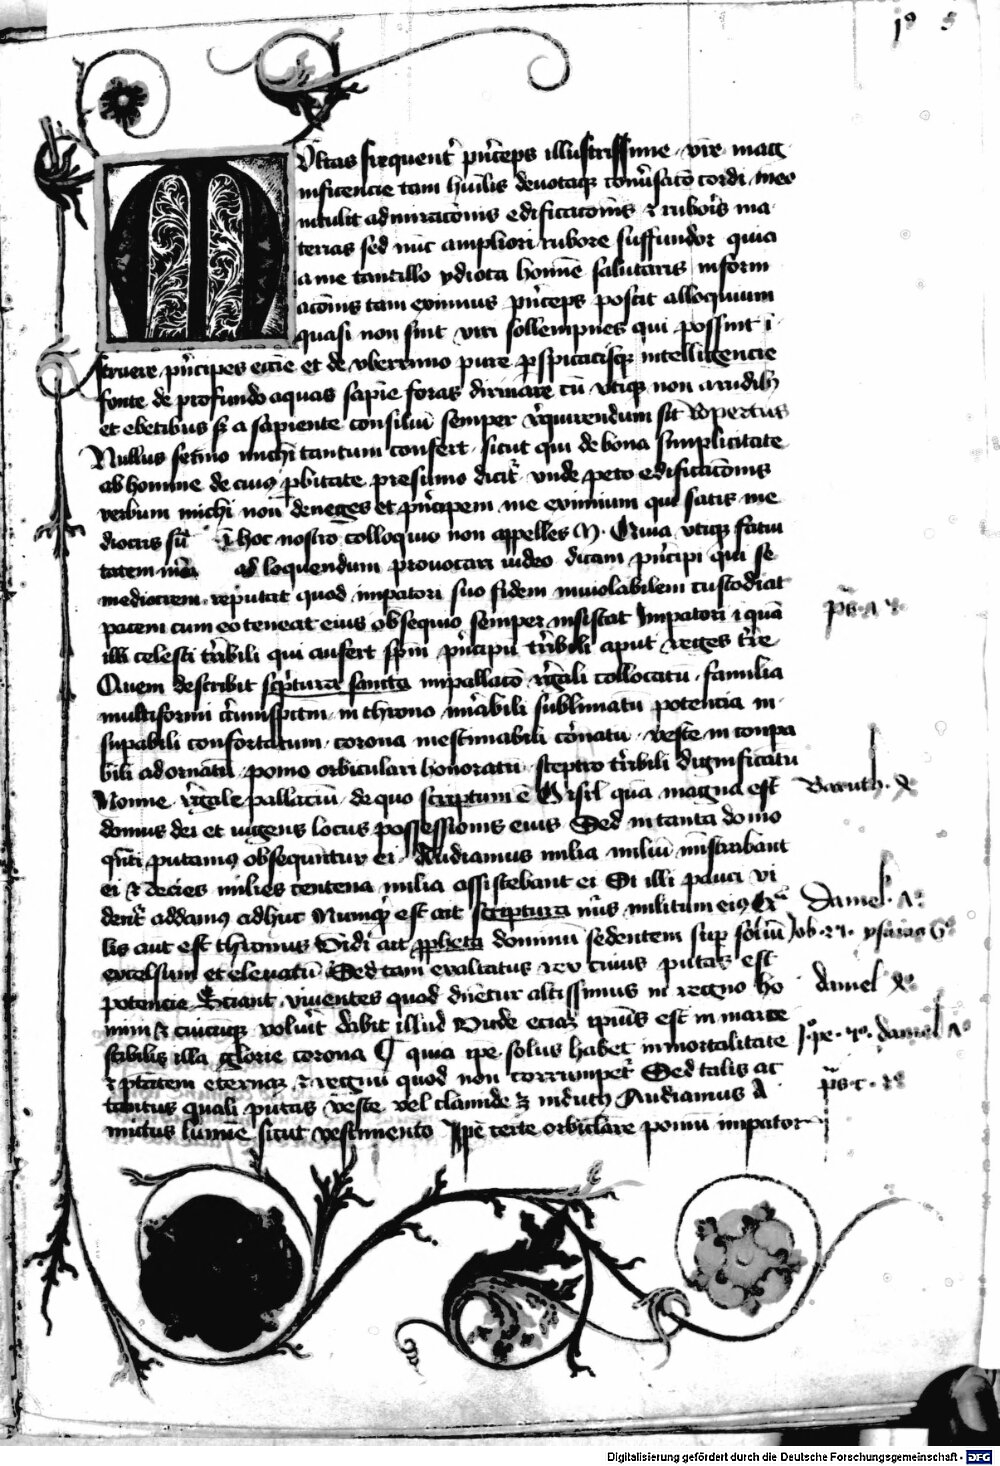 1º 5
Ultas frequent' p'nceps illustrissime vir' mag
nificencie tam hu'ilis deuotaq; conu'sac'o cordi meo
intulit admirac'onis edificac'onis et rubor's ma
terias sed nu'c ampliori rubore suffundor quia
a me tantillo ydiota ho'i'e salutaris inform
ac'onis tam eximius p'nceps poscit alloquium
quasi non sint viri sollempnes qui possint i'
struere p'ncipes eccie et de vberrimo pure p'spicacisq; intelligencie
fonte de profundo aquas sapie foras diriuare cu' vtiq; non a rudib;
et ebetibus s; a sapiente consiliu' semper requirendum sit
Nullus sermo michi tantum confert sicut qui de bona simplicitate
ab homine de cuius p'bitate presumo dicit' vnde peto edificac'onis
verbum michi non deneges et p'ncipem me eximium qui satis me
diocris su' in hoc nostro colloquio non appelles M. Quia vtiq; fatui
tatem mea' ad loquendum prouocari video dicam p'ncipi qui se
mediocrem reputat quod impatori suo fidem inuiolabilem custodiat
pacem cum eo teneat eius obsequio semper insistat Impatori inqua'
illi celesti t'ribili qui aufert sp'm p'ncipu' t'ribili aput reges t're
Quem describit sc'ptura sancta in pallac'o regali collocatu' familia
multiformi circumspectu' in throno mirabili sublimatu' potencia in
supabili confortatum corona inestimabili c'onatu' veste in conpa
bili adornatu' pomo orbiculari honoratu' sceptro t'ribili dignificatu'
Nonne regale pallaciu' de quo scriptum e' O isr'l qua' magna est
domus dei et ingens locus possessionis eius Sed in tanta domo
qu'ti putamus obsequntur ei Audiamus milia miliu' mi'strabant
ei et decies milies centena milia assistebant ei Si illi pauci vi
dent' addamus adhuc Numq'd est ait scriptura nu's militum eius
lis aut est thronus Vidi ait p'pheta dominu' sedentem sup' soliu'
excelsum et eleuatu' Sed tam exaltatus rex cuius putas est
potencie Sciant viuentes quod d'netur altissimus in regno ho
minu' et cuicu'q; volu'it dabit illud Vnde ecia'
stibilis illa glorie corona quia ip'e solus habet inmortalitate
et p'tatem eterna' et regnu' quod non corrumpet' Sed talis ac
tantus quali putas veste vel clamide
mictus lumine sicut vestimento Ip'e certe orbic'lare pomu' impator
Baruch
Daniel
Job
ysaias 6º
daniel
daniel
Digitalisierung gefördert durch die Deutsche Forschungsgemeinschaft - DFG